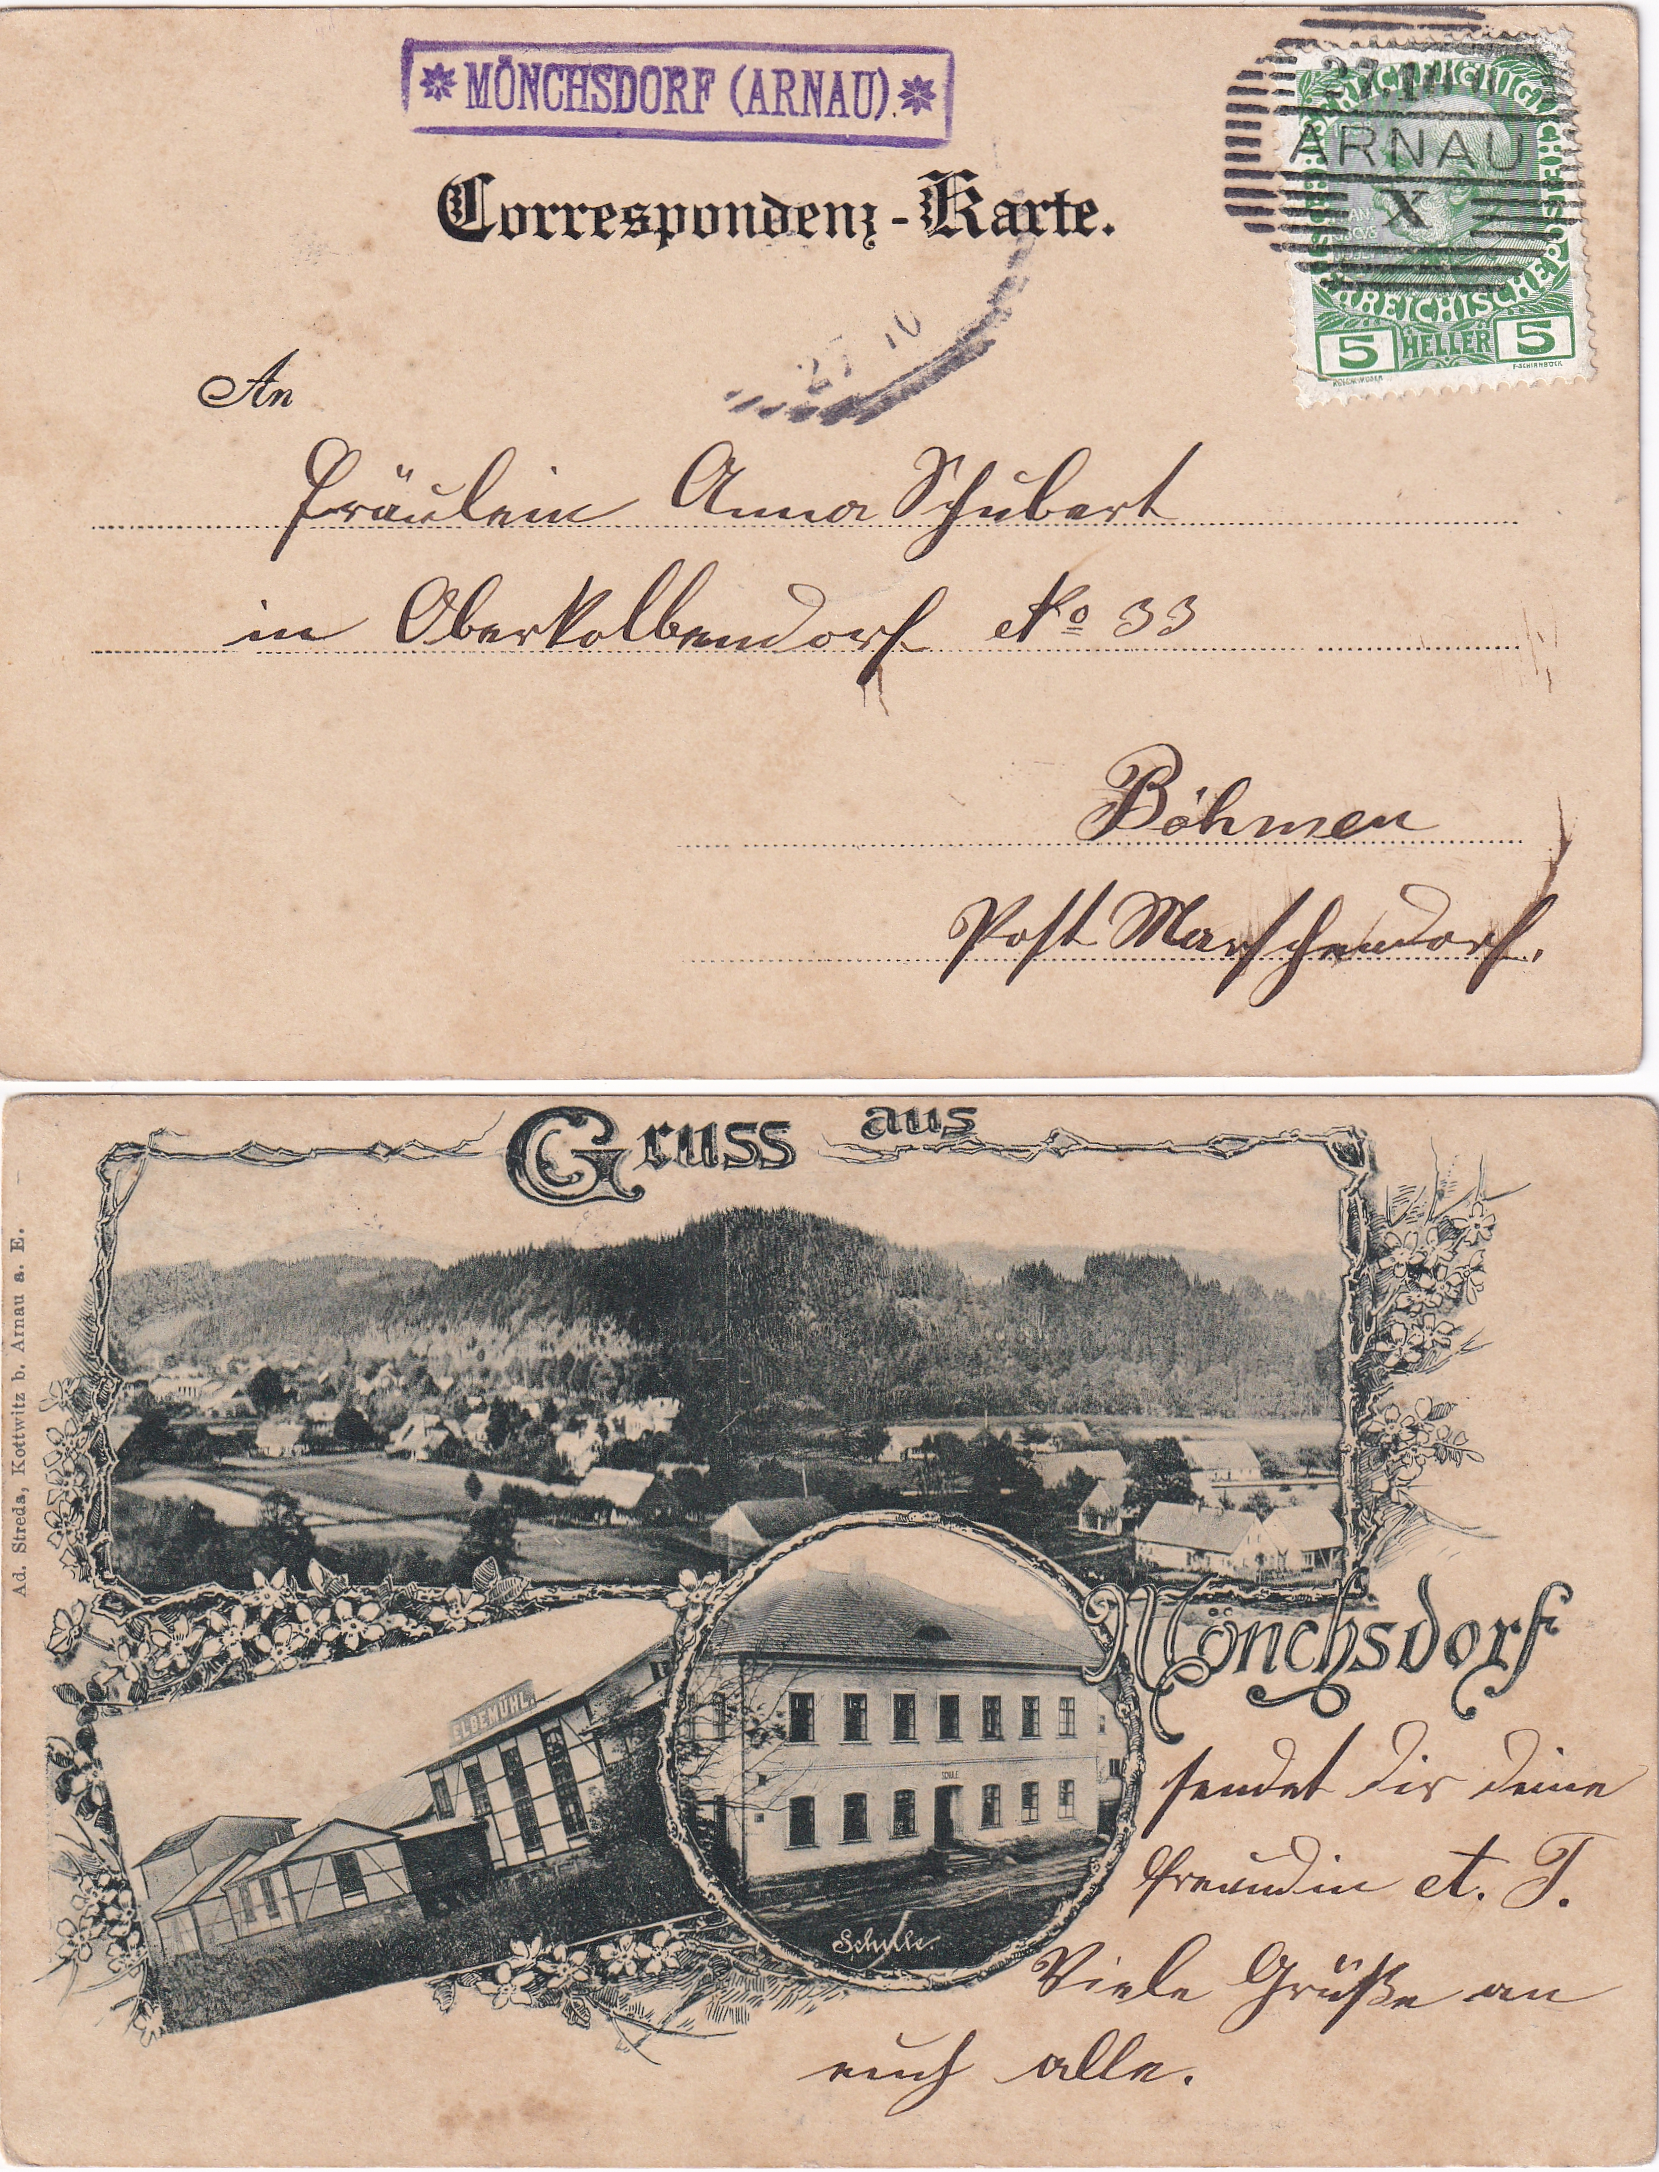 * MÖNCHSDORF (ARNAU). *
ARNAU
X
Correspondenz-Karte.
REICHISCHE
5 HELLER 5
27 10
An
Fräulein Anna Schubert
in Oberkolbendorf No 33
Böhmen
Post Marschendorf.
Gruss aus
Ad. Streda, Kottwitz b. Arnau a. E.
Mönchsdorf
ELBEMÜHL.
SCHULE
Schule.
sendet dir deine
Freundin et. T.
Viele Grüße an
euch alle.